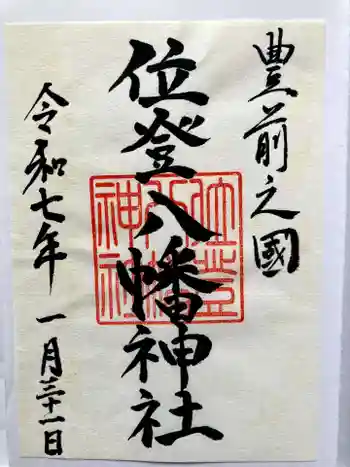 豊前之國
位登八幡神社
位登
八幡
神社
令和七年 一月三十一日